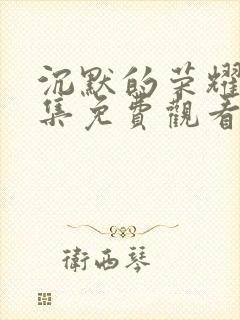 沉默的荣耀
集免費觀看
衛西琴